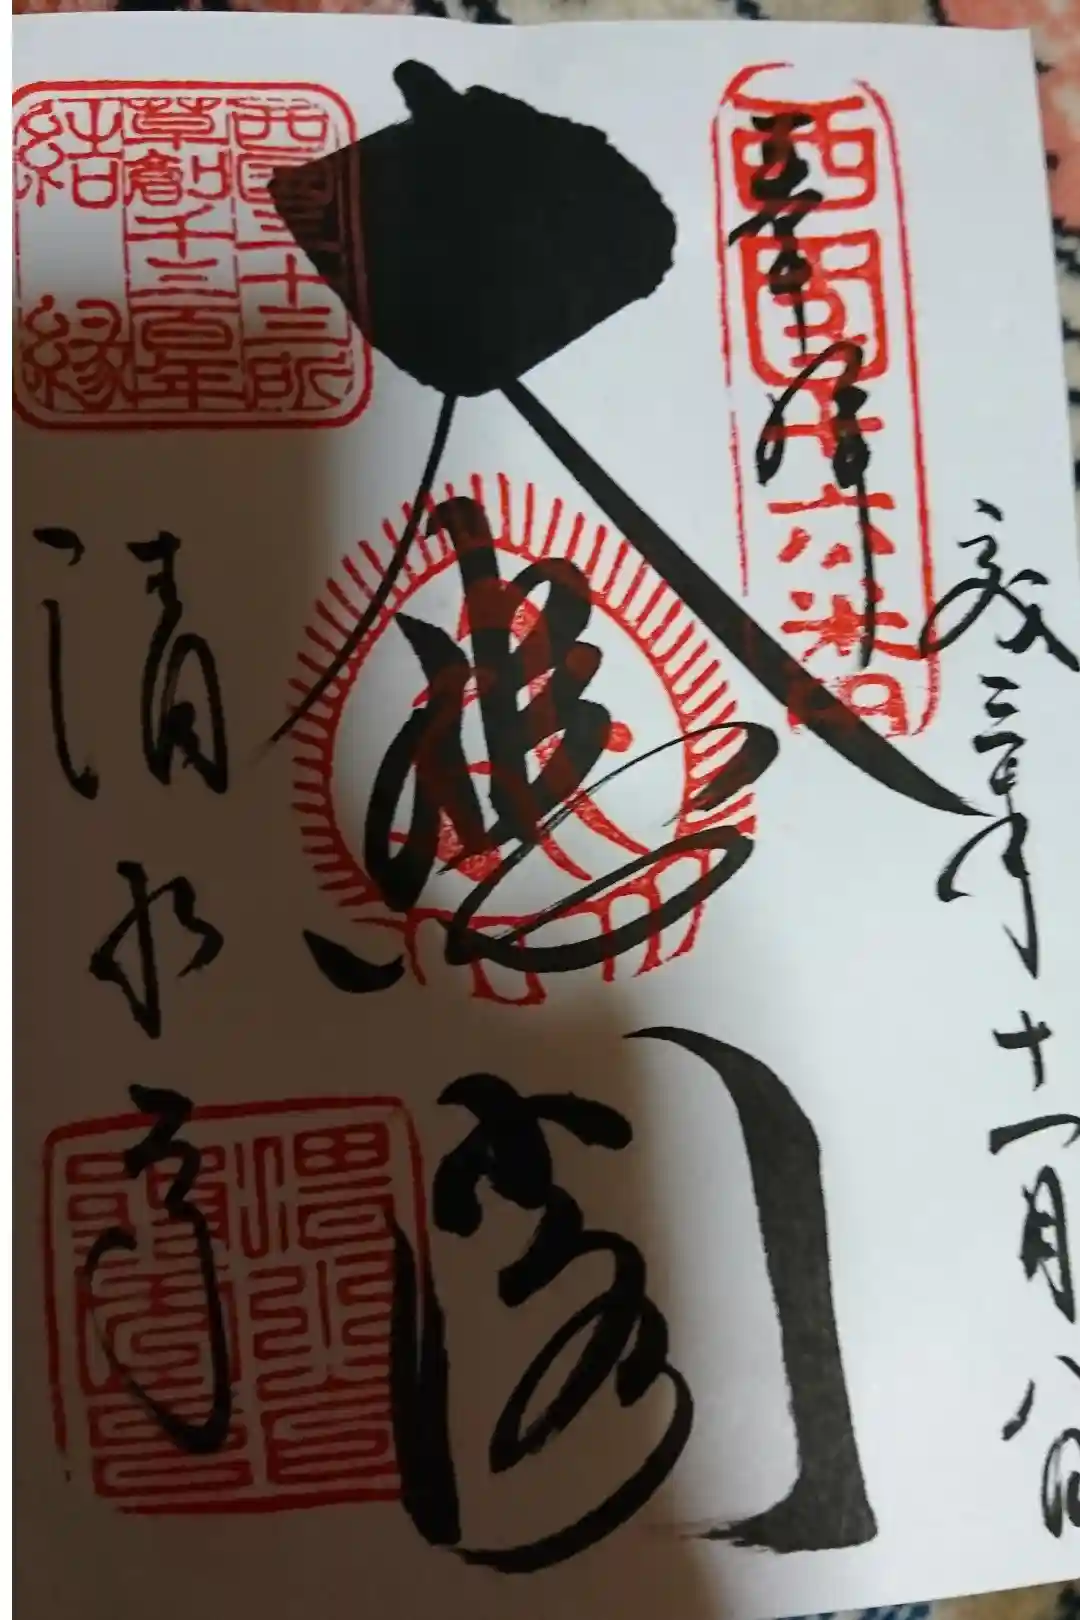 三年十一月八日
奉拝
西国十六番
大悲閣
西国三十三所
草創千三百年
結縁
清水寺